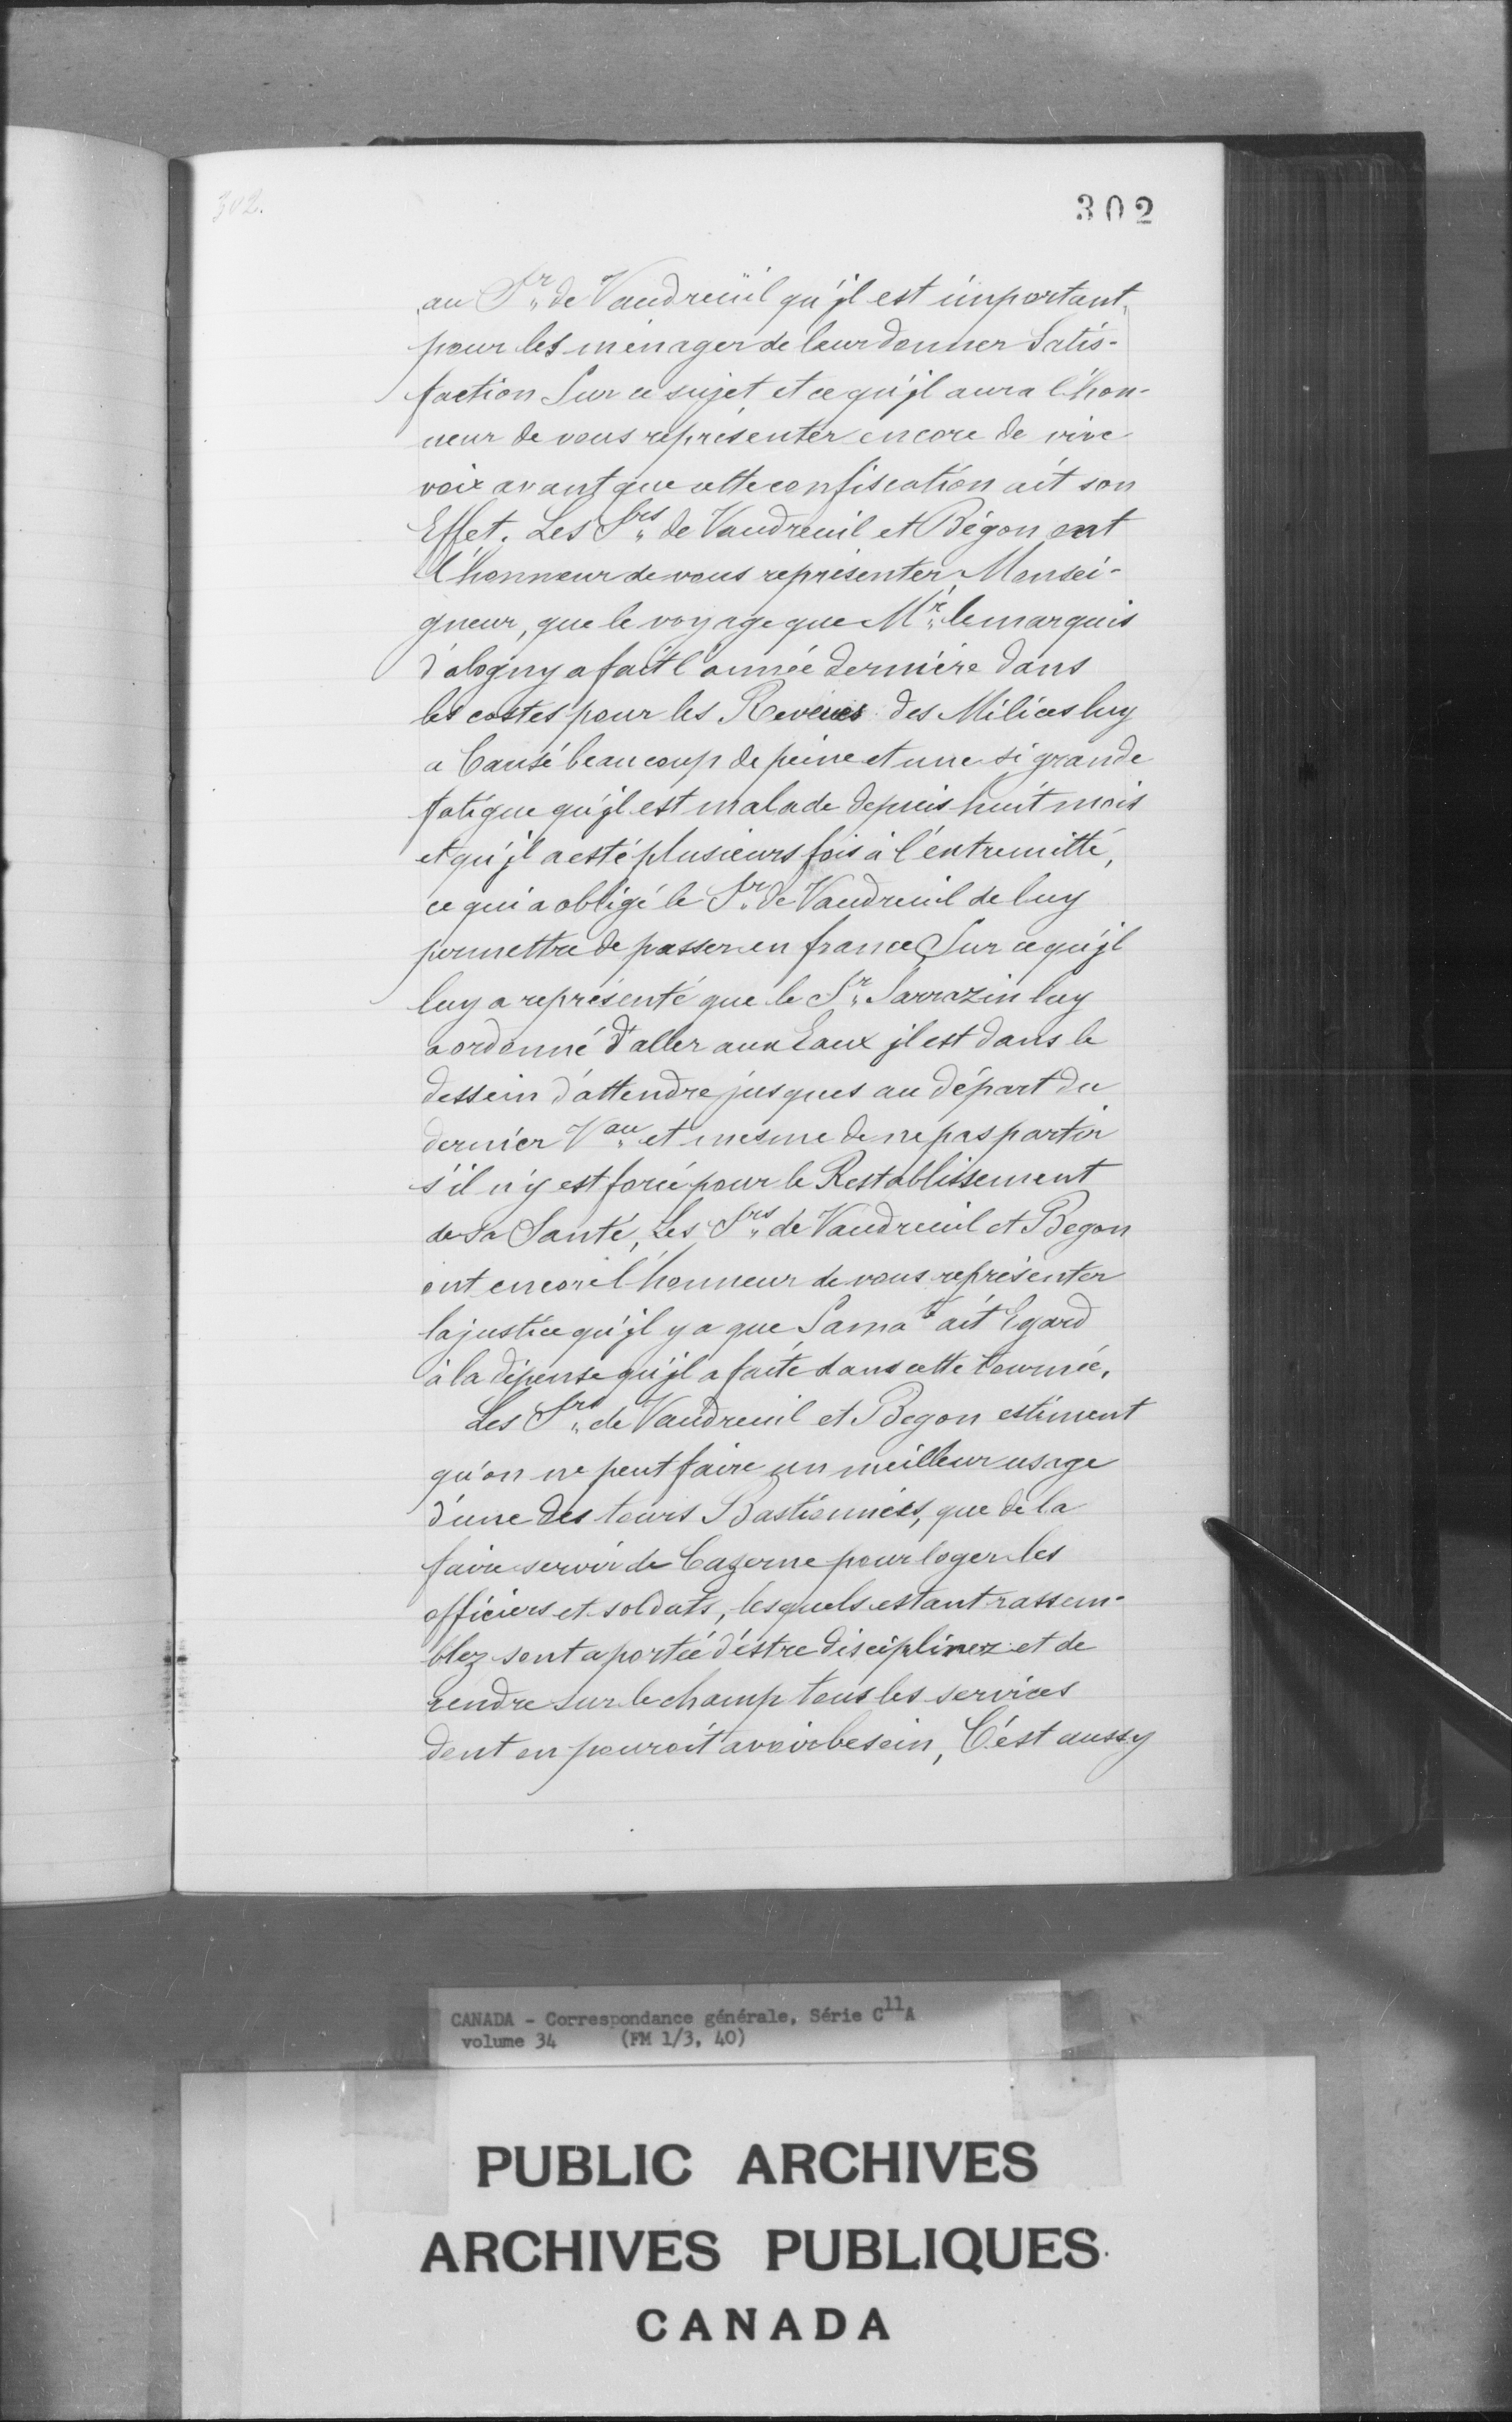 302.
302
au Sr. de Vaudreüil qu'jl est important,
pour les ménager de leur donner Satis-
faction Sur ce sujet, et ce qu'jl aura l'hon-
neur de vous représenter encore de vive
voix avant que cette confiscation ait son
Effet. Les Srs. de Vaudreuil et Bégon ont
l'honneur de vous représenter, Monsei-
gneur, que le voyage que Mr. le marquis
d'alogny a fait l'année dernière dans
les costes pour les Reveües des Milices luy
a Causé beaucoup de peine et une si grande
fatigue qu'jl est malade depuis huit mois
et qu'jl a esté plusieurs fois à l'entremitté,
ce qui a obligé le Sr. de Vaudreuil de luy
permettre de passer en france Sur ce qu'jl
luy a représenté que le Sr. Sarrazin luy
a ordonné d'aller aux Eaux jl est dans le
dessein d'attendre jusques au départ du
dernier Vau. et mesme de ne pas partir
s'il n'y est forcé pour le Restablissement
de Sa Santé, Les Srs. de Vaudreuil et Begon
ont encore l'honneur de vous représenter
la justice qu'jl y a que Sa ma té ait Egard
à la dépense qu'jl a faite dans cette tournée.
Les Srs. de Vaudreuil et Begon estiment
qu'on ne peut faire un meilleur usage
d'une des tours Bastionnées, que de la
faire servir de Cazerne pour loger les
officiers et soldats, lesquels estant rassem-
blez sont a portée d'estre disciplinez et de
rendre sur le champ tous les services
dont on pouroit avoir besoin, C'est aussy
CANADA - Correspondance générale, Série C11A
volume 34 (FM 1/3, 40)
PUBLIC ARCHIVES
ARCHIVES PUBLIQUES
CANADA